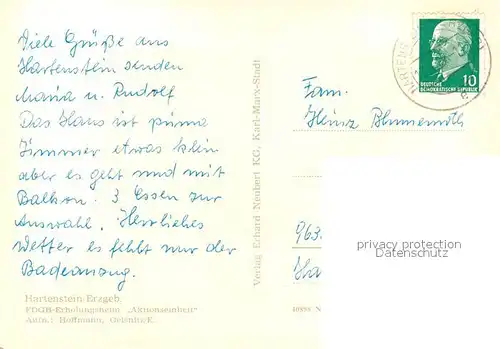 Viele Grüße aus
Hartenstein senden
Maria u. Rudolf
Das Haus ist prima
Zimmer etwas klein
aber es geht und mit
Balkon. 3 Essen zur
Auswahl. Herrliches
Wetter es fehlt nur der
Badeanzug.
Hartenstein-Erzgeb.
FDGB-Erholungsheim „Aktionseinheit"
Aufn.: Hoffmann, Oelsnitz-E.
Verlag Erhard Neubert KG, Karl-Marx-Stadt
10
DEUTSCHE
DEMOKRATISCHE REPUBLIK
Fam.
Heinz
963
privacy protection
Datenschutz